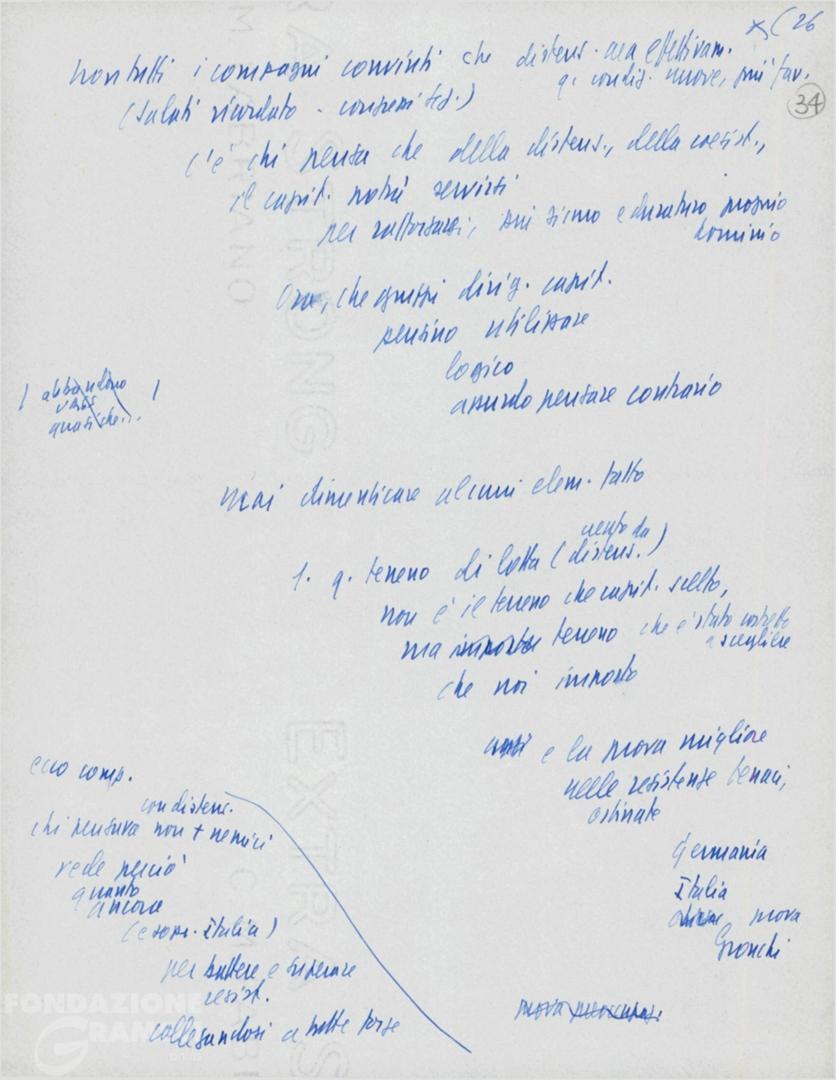 (26
34
non tutti i compagni convinti che distens. crea effettivam.
q. condiz. nuove, più fav.
(Salati ricordato - congressi fed.)
c'è chi pensa che della distens., della coesist.,
il capit. potrà servirsi
per rafforzarsi, più sicuro e duraturo proprio
dominio
Ora, che gruppi dirig. capit.
pensino utilizzare
logico
assurdo pensare contrario
! abbandono !
quasi che...
mai dimenticare alcuni elem. fatto
1. q. terreno di lotta (distens.)
creato da
non è il terreno che capit. scelto,
ma terreno che è stato costretto
a scegliere
che noi imposto
e la prova migliore
nelle resistenze tenaci,
ostinate
Germania
Italia
prova
Gronchi
ecco comp.
con distens.
chi pensava non + nemici
vede perciò
quanto
ancora
(e sopr. Italia)
per battere e superare
resist.
collegandosi a tutte forze
prova preoccupaz.
EXTRA STRONG
FABRIANO
FONDAZIONE
GRAMSCI